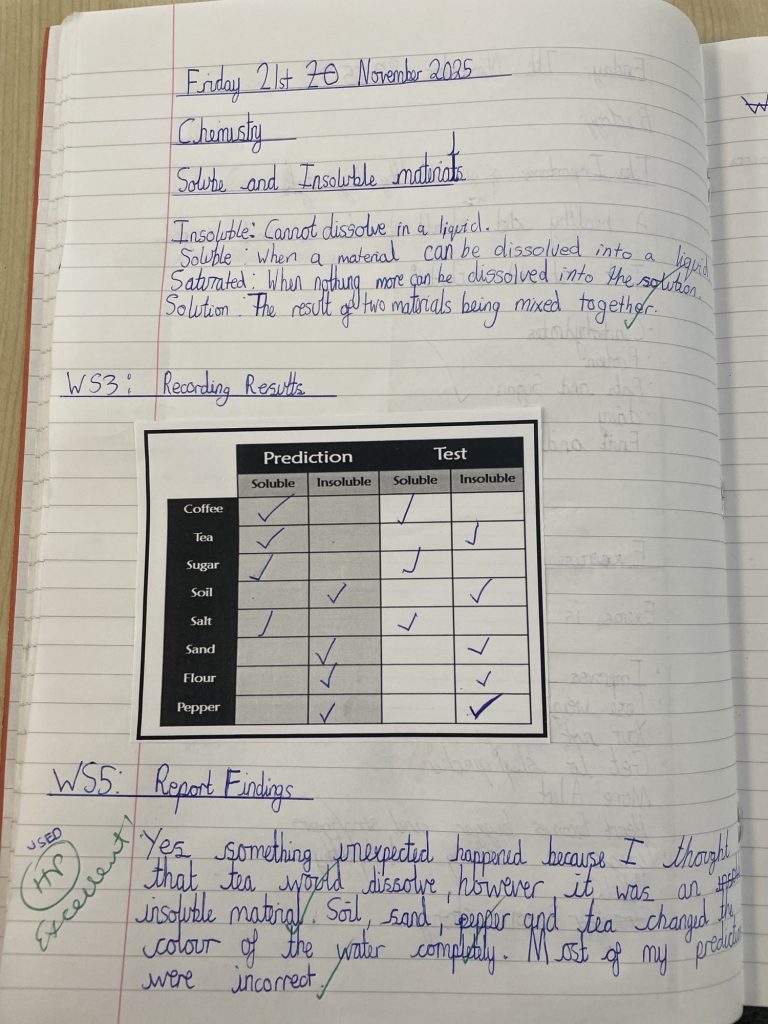 Friday 21st 20 November 2025
Chemistry
Soluble and Insoluble materials
Insoluble: Cannot dissolve in a liquid.
Soluble: When a material can be dissolved into a liquid.
Saturated: When nothing more can be dissolved into the solution.
Solution: The result of two materials being mixed together.
WS3: Recording Results
Prediction Test
Soluble Insoluble Soluble Insoluble
Coffee ✓ ✓
Tea ✓ ✓
Sugar ✓ ✓
Soil ✓ ✓
Salt ✓ ✓
Sand ✓ ✓
Flour ✓ ✓
Pepper ✓ ✓
WS5: Report Findings
USED
HP
Excellent!
Yes something unexpected happened because I thought
that tea would dissolve, however it was an
insoluble material. Soil, sand, pepper and tea changed the
colour of the water completly. Most of my
were incorrect.